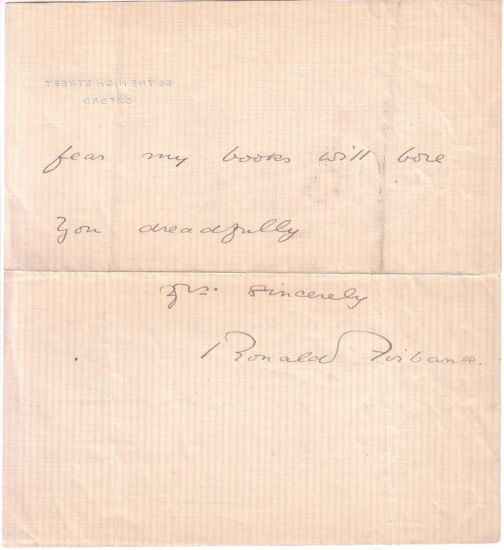 THE HIGH STREET
OXFORD
fear my books will bore
you dreadfully
yrs. sincerely
Ronald Firbank.